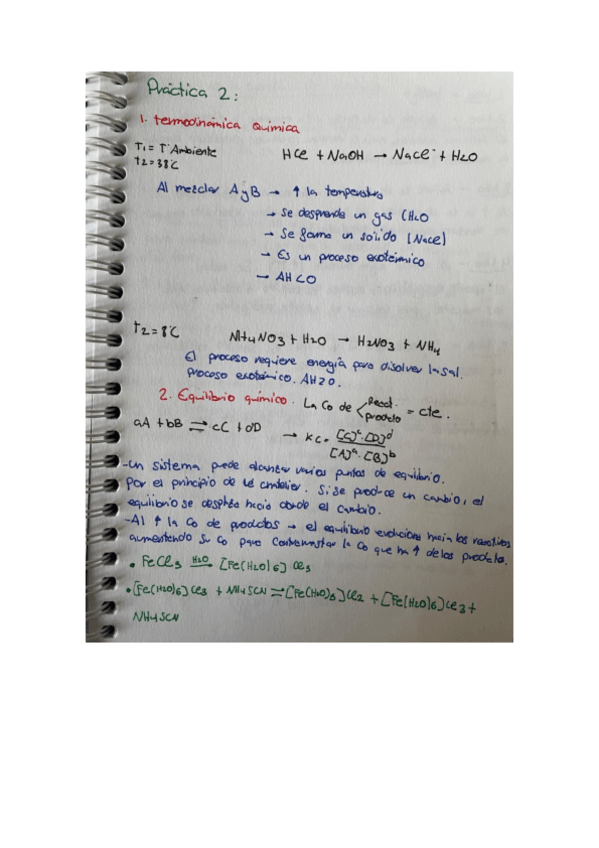 Práctica 2:
1. Termodinámica Química
T1 = Tª Ambiente
T2 = 38°C
HCl + NaOH → NaCl + H2O
Al mezclar A y B → ↑ la temperatura
→ Se desprende un gas (H2O
→ Se forma un solido [NaCl]
→ Es un proceso exotérmico
→ AH<0
T2 = 8°C
NH4NO3 + H2O → H2NO3 + NH4
El proceso requiere energía para disolver la sal.
proceso exotérmico. AH>0.
2. Equilibrio químico. La Co de < React. producto = cte.
aA + bB ⇌ cC + dD → Kc = [C]^c · [D]^d / [A]^a · [B]^b
-Un sistema puede alcanzar varios puntos de equilibrio.
Por el principio de Le Chatelier. Si se produce un cambio, el
equilibrio se desplaza hacia donde el cambio.
-Al ↑ la Co de productos → el equilibrio evoluciona hacia los reactivos
aumentando su Co para contrarrestar la Co que ha ↑ de los producto.
• FeCl3 H2O→ [Fe(H2O)6]Cl3
• [Fe(H2O)6]Cl3 + NH4SCN ⇌ [Fe(H2O)5]Cl2 + [Fe(H2O)6]Cl3 +
NH4SCN